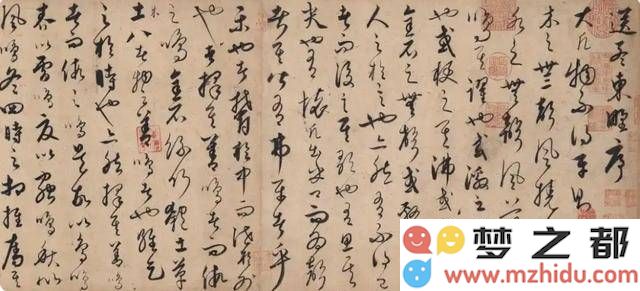 送孟東野序
大凡物不得平則
木之無聲風撓
水之無聲風
鳴其躍也或激之
也或梗之其沸或
金石之無聲或擊
人之於言也亦然有不得已
者而後言其歌也有思其
哭也有懷凡出乎口而為聲
者其皆有弗平者乎
樂也者鬱於中而泄於外
也者擇其善鳴者而假
之鳴金石絲竹匏土革
土八者物之善鳴者也維天
之於時也亦然擇其善鳴
者而假之鳴是故以鳥鳴
春以雷鳴夏以蟲鳴秋以
風鳴冬四時之相推奪其
梦之都
www.mzhidu.com